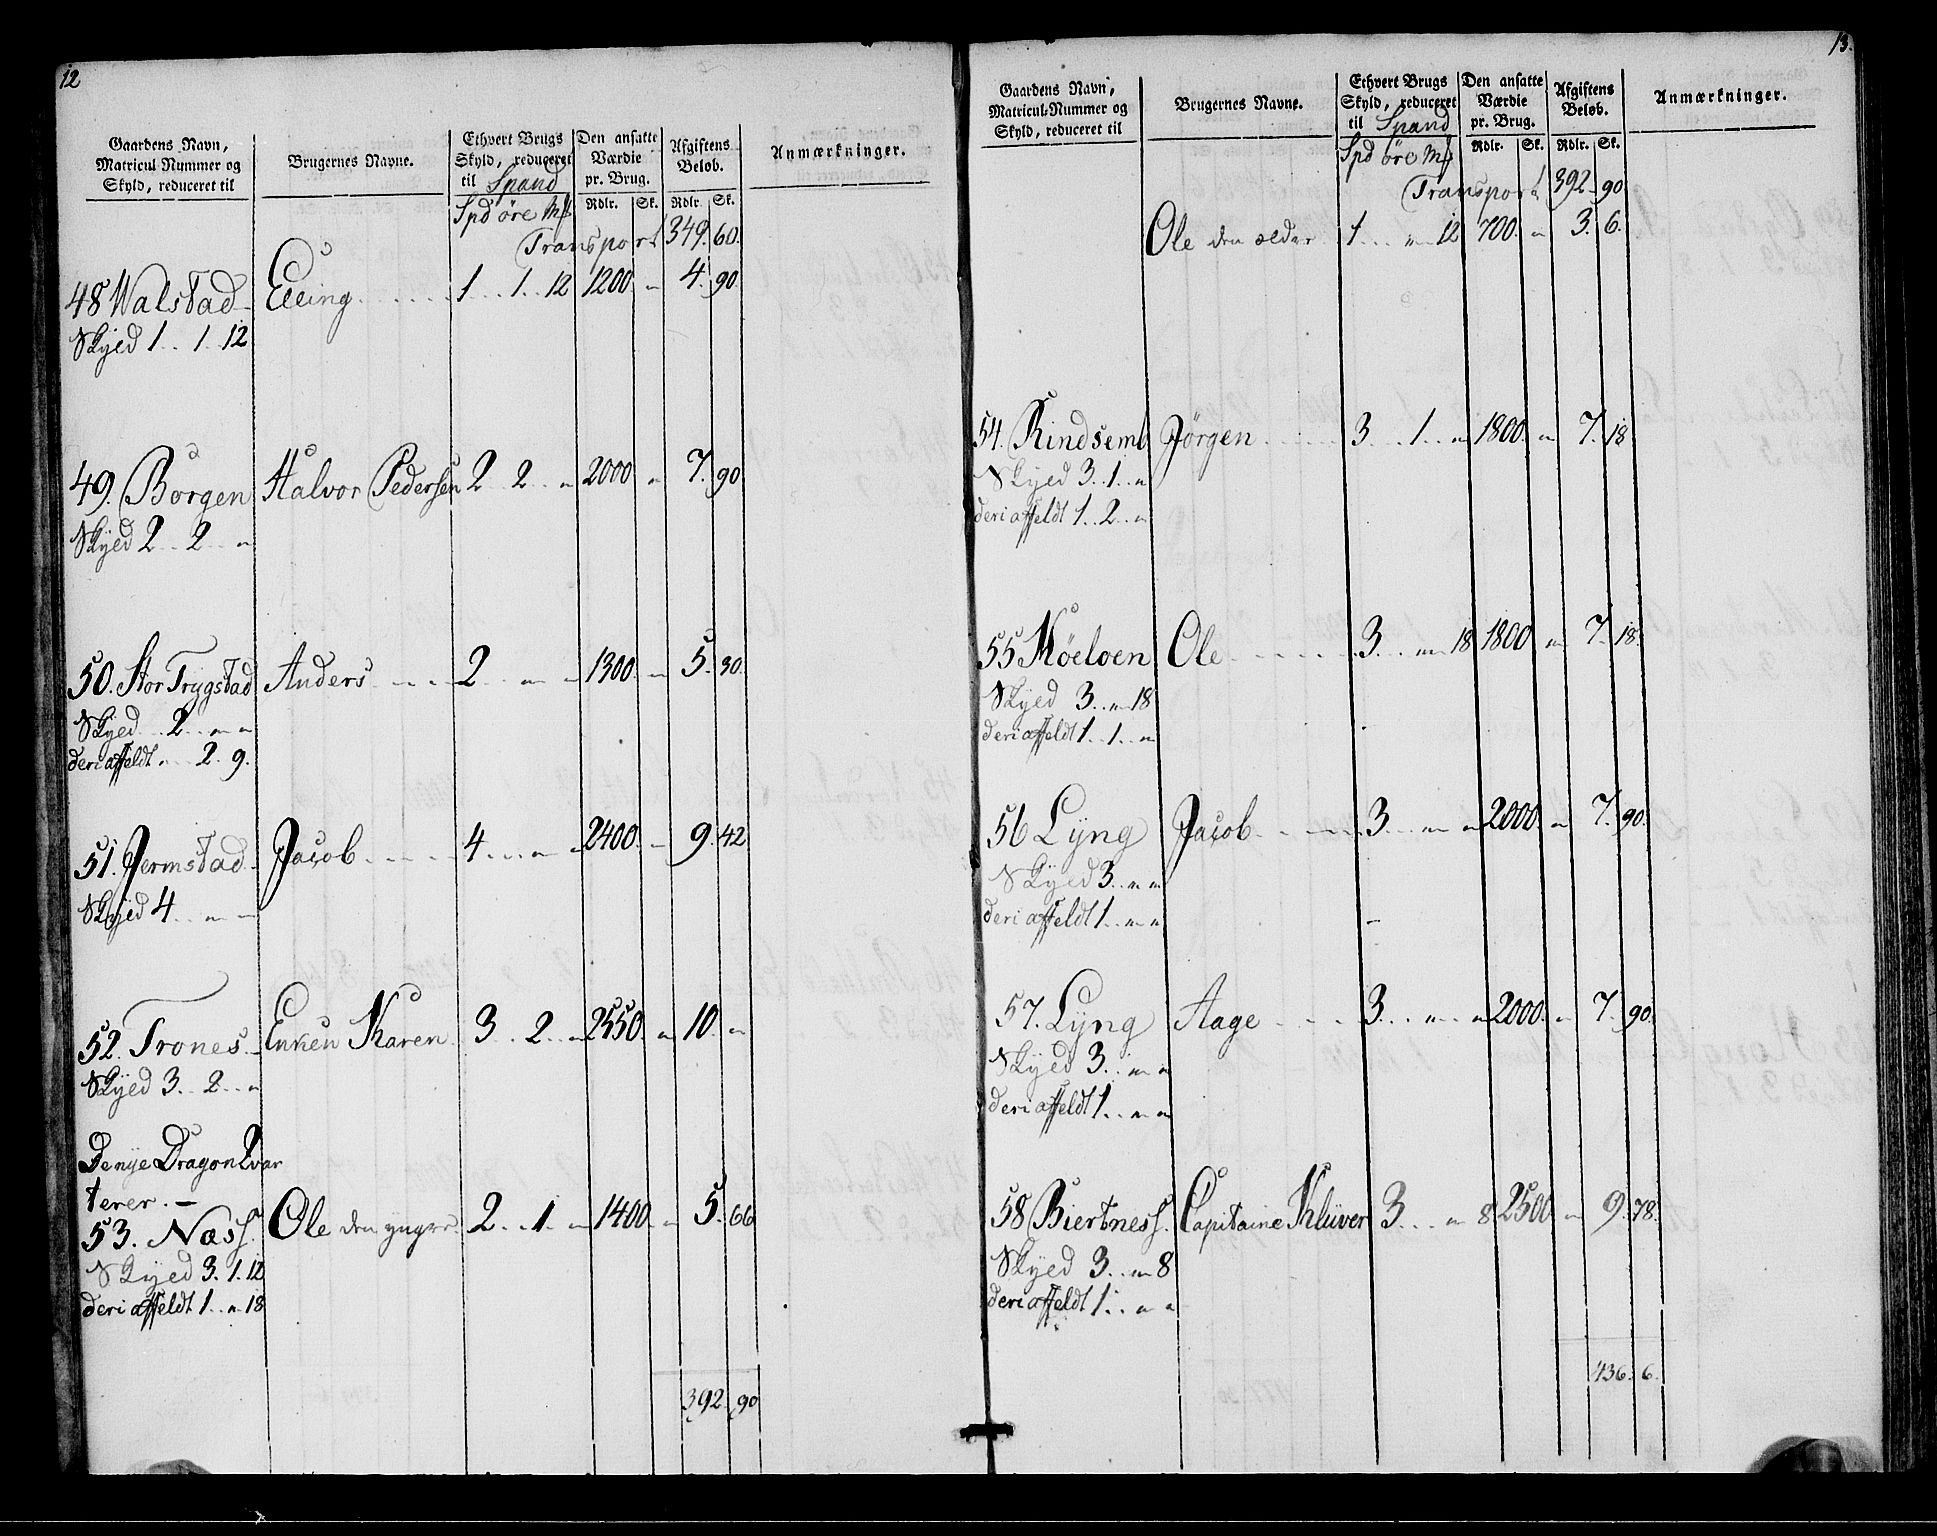 12
Gaardens Navn, Matricul Nummer og Skyld, reduceret til | Brugernes Navne. | Ethvert Brugs Skyld, reduceret til Spand | Den ansatte Værdie pr. Brug. | Afgiftens Beløb. | Anmærkninger.
Spd øre Mk | Rdlr. | Sk. | Rdlr. | Sk.
Transport 349. 60.
48 Walstad Elling 1 .. 1 .. 12 1200 " 4. 90
Skyld 1 .. 1 .. 12
49. Borgen Halvor Pedersen 2 .. 2 .. " 2000 " 7. 90
Skyld 2 .. 2 .. "
50. Stor Trygstad Anders 2 .. " .. " 1300. " 5. 30.
Skyld 2 .. " "
deri affeldt " .. 2. 9.
51. Jermstad Jacob 4 .. " .. " 2400. " 9. 42
Skyld 4 .. " "
52. Trones Enken Karen 3 .. 2 .. " 2550. " 10. "
Skyld 3 .. 2 .. "
De nye Dragon Qvar
terer. –
53. Næss. Ole den yngre 2 .. 1 .. " 1400. " 5. 66
Skyld 3. 1. 12
deri affeldt 1 .. " 18
392. 90
13.
Gaardens Navn, Matricul-Nummer og Skyld, reduceret til | Brugernes Navne. | Ethvert Brugs Skyld, reduceret til Spand | Den ansatte Værdie pr. Brug. | Afgiftens Beløb. | Anmærkninger.
Spd øre Mk | Rdlr. | Sk. | Rdlr. | Sk.
Transport 392. 90
Ole den ælder 1 .. " 12 700. " 3. 6.
54. Rindsem Jörgen 3 .. 1 .. " 1800. " 7. 18
Skyld 3 .. 1 .. "
deri affeldt 1 .. 2 .. "
55 Ole 3 .. " 18 1800 " 7. 18.
Skyld 3 .. " 18
deri affeldt 1 .. 1 .. "
56 Lyng Jacob 3 .. " " 2000. " 7. 90.
Skyld 3 .. " "
deri affeldt 1 .. " "
57. Lyng Aage 3 .. " .. " 2000. " 7. 90.
Skyld 3 .. " "
deri affeldt 1 .. " "
58 Biertness. Capitaine Klüver 3 .. " 8 2500 " 9. 78.
Skyld 3 .. " 8
deri affeldt 1 .. " "
436. 6.